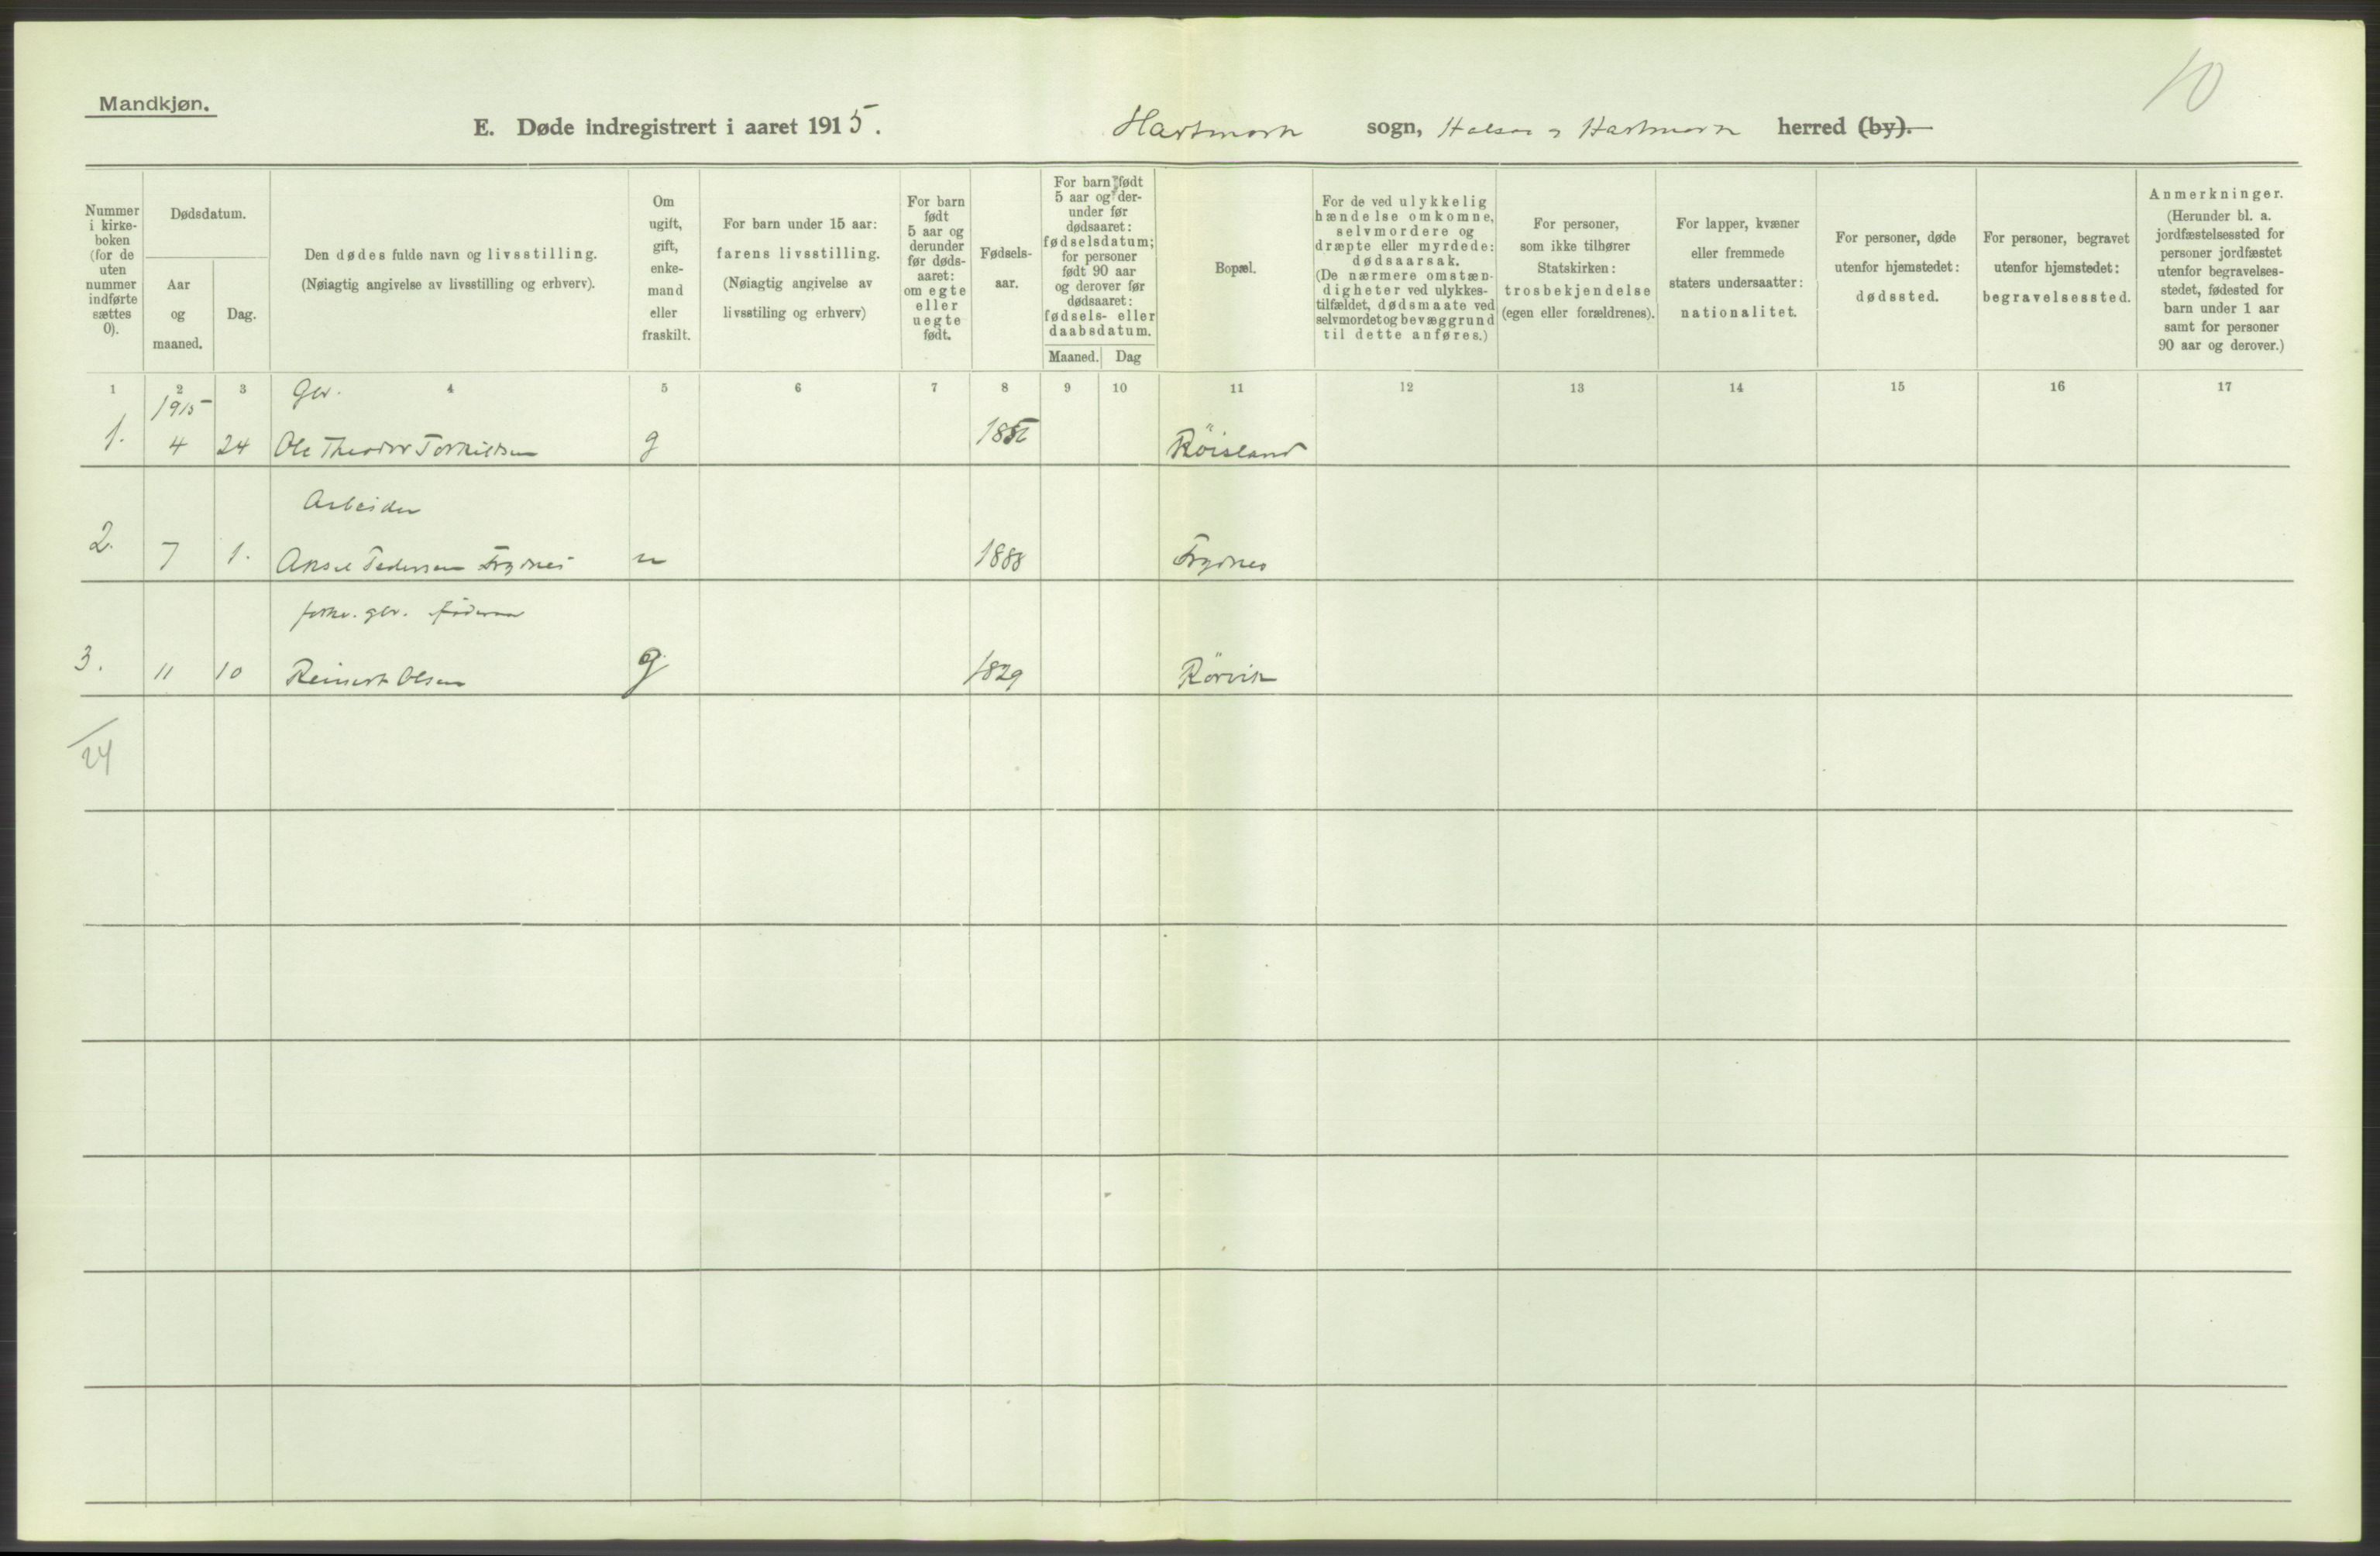 10
Mandkjøn.
E. Døde indregistrert i aaret 1915. Hartmark sogn, Halsaa og Hartmark herred (by).
Nummer i kirke-boken (for de uten nummer indførte sættes 0).
Dødsdatum.
Aar og maaned.
Dag.
Den dødes fulde navn og livsstilling.
(Nøiagtig angivelse av livsstilling og erhverv).
Om ugift, gift, enke-mand eller fraskilt.
For barn under 15 aar:
farens livsstilling.
(Nøiagtig angivelse av livsstiling og erhverv)
For barn født 5 aar og derunder før døds-aaret: om egte eller uegte født.
Fødsels-aar.
For barn født 5 aar og der-under før dødsaaret: fødselsdatum; for personer født 90 aar og derover før dødsaaret: fødsels- eller daabsdatum.
Maaned. Dag
Bopæl.
For de ved ulykkelig hændelse omkomne, selvmordere og dræpte eller myrdede: dødsaarsak.
(De nærmere omstæn-digheter ved ulykkes-tilfældet, dødsmaate ved selvmordet og bevæggrund til dette anføres.)
For personer, som ikke tilhører Statskirken: trosbekjendelse (egen eller forældrenes).
For lapper, kvæner eller fremmede staters undersaatter: nationalitet.
For personer, døde utenfor hjemstedet: dødssted.
For personer, begravet utenfor hjemstedet: begravelsessted.
Anmerkninger.
(Herunder bl. a. jordfæstelsessted for personer jordfæstet utenfor begravelses-stedet, fødested for barn under 1 aar samt for personer 90 aar og derover.)
1 2 3 4 5 6 7 8 9 10 11 12 13 14 15 16 17
1915 Gbr.
1. 4 24 Ole Theodor Torkildsen g Röisland
Arbeider
2. 7 1. Aksel Pedersen Frydnes u 1888 Frydnes
forhv. gbr. föderaad
3. 11 10 Reinert Olsen g 1829 Rörvik
24